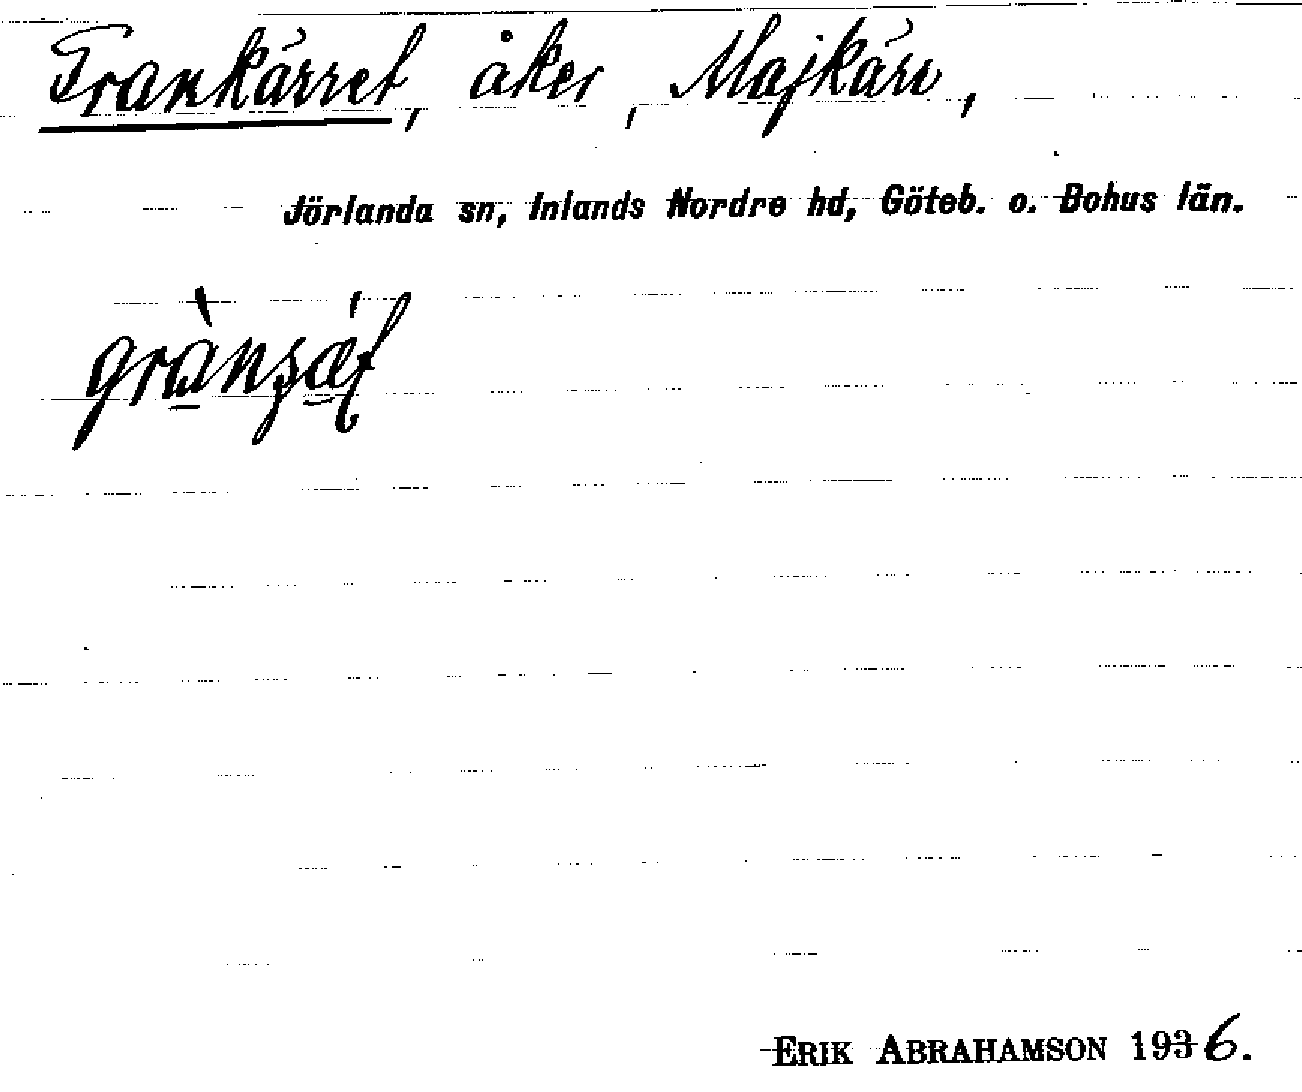 Trankärret, åker, Majkärr,
Jörlanda sn, Inlands Nordre hd, Göteb. o. Bohus län.
ERIK ABRAHAMSON 1936.